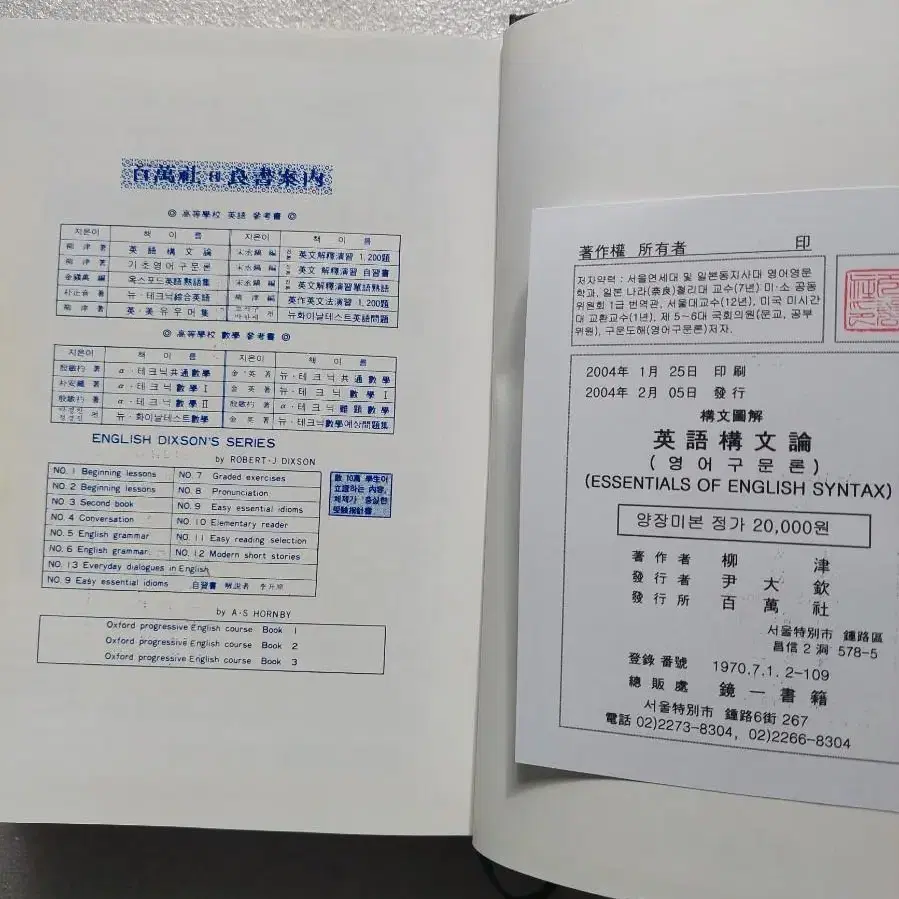 百萬社 刊 良書案內
◎ 高等學校 英語 參考書 ◎
지은이 책 이 름 지은이 책 이 름
柳 津 著 英 語 構 文 論 宋永鎬 編 英文解釋演習 1,200題
柳 津 著 기초영어구문론 宋永鎬 編 英文 解釋演習 自習書
編 옥스포드英語熟語集 宋永鎬 編 英文解釋演習單語熟語
朴正音 著 뉴·테크닉綜合英語 柳 津 編 英作英文法演習 1,200題
柳 津 著 英·美유우머集 뉴화이날테스트英語問題
◎ 高等學校 數學 參考書 ◎
지은이 책 이 름 지은이 책 이 름
殷敏杓 著 α·테크닉共通數學 金 英 著 뉴·테크닉共通數學
著 α·테크닉數學Ⅰ 金 英 著 뉴·테크닉 數學Ⅰ
殷敏杓 著 α·테크닉數學Ⅱ 殷敏杓 著 α·테크닉難題數學
저 뉴·화이날테스트數學 金 英 著 뉴·테크닉數學예상問題集
ENGLISH DIXSON'S SERIES
by ROBERT·J DIXSON
NO. 1 Beginning lessons NO. 7 Graded exercises
NO. 2 Beginning lessons NO. 8 Pronunciation
NO. 3 Second book NO. 9 Easy essential idioms
NO. 4 Conversation NO. 10 Elementary reader
NO. 5 English grammar NO. 11 Easy reading selection
NO. 6 English grammar NO. 12 Modern short stories
NO. 13 Everyday dialogues in English
NO. 9 Easy essential idioms 自習書 解說者
數10萬 學生이
立證하는 內容,
체제가 충실한
受驗指針書
by A·S HORNBY
Oxford progressive English course Book 1
Oxford progressive English course Book 2
Oxford progressive English course Book 3
著作權 所有者 印
저자약력 : 서울연세대 및 일본동지사대 영어영문
학과, 일본 나라(奈良)철리대 교수(7년) 미·소 공동
위원회 1급 번역관, 서울대교수(12년), 미국 미시간
대 교환교수(1년), 제 5~6대 국회의원(문교, 공부
위원), 구문도해(영어구문론)저자.
2004年 1月 25日 印刷
2004年 2月 05日 發行
構文圖解
英語構文論
(영어구문론)
(ESSENTIALS OF ENGLISH SYNTAX)
양장미본 정가 20,000원
著 作 者 柳 津
發 行 者 尹 大 欽
發 行 所 百 萬 社
서울特別市 鍾路區
昌信 2 洞 578-5
登錄番號 1970.7.1. 2-109
總 販 處 鏡 一 書 籍
서울特別市 鍾路6街 267
電話 02)2273-8304, 02)2266-8304